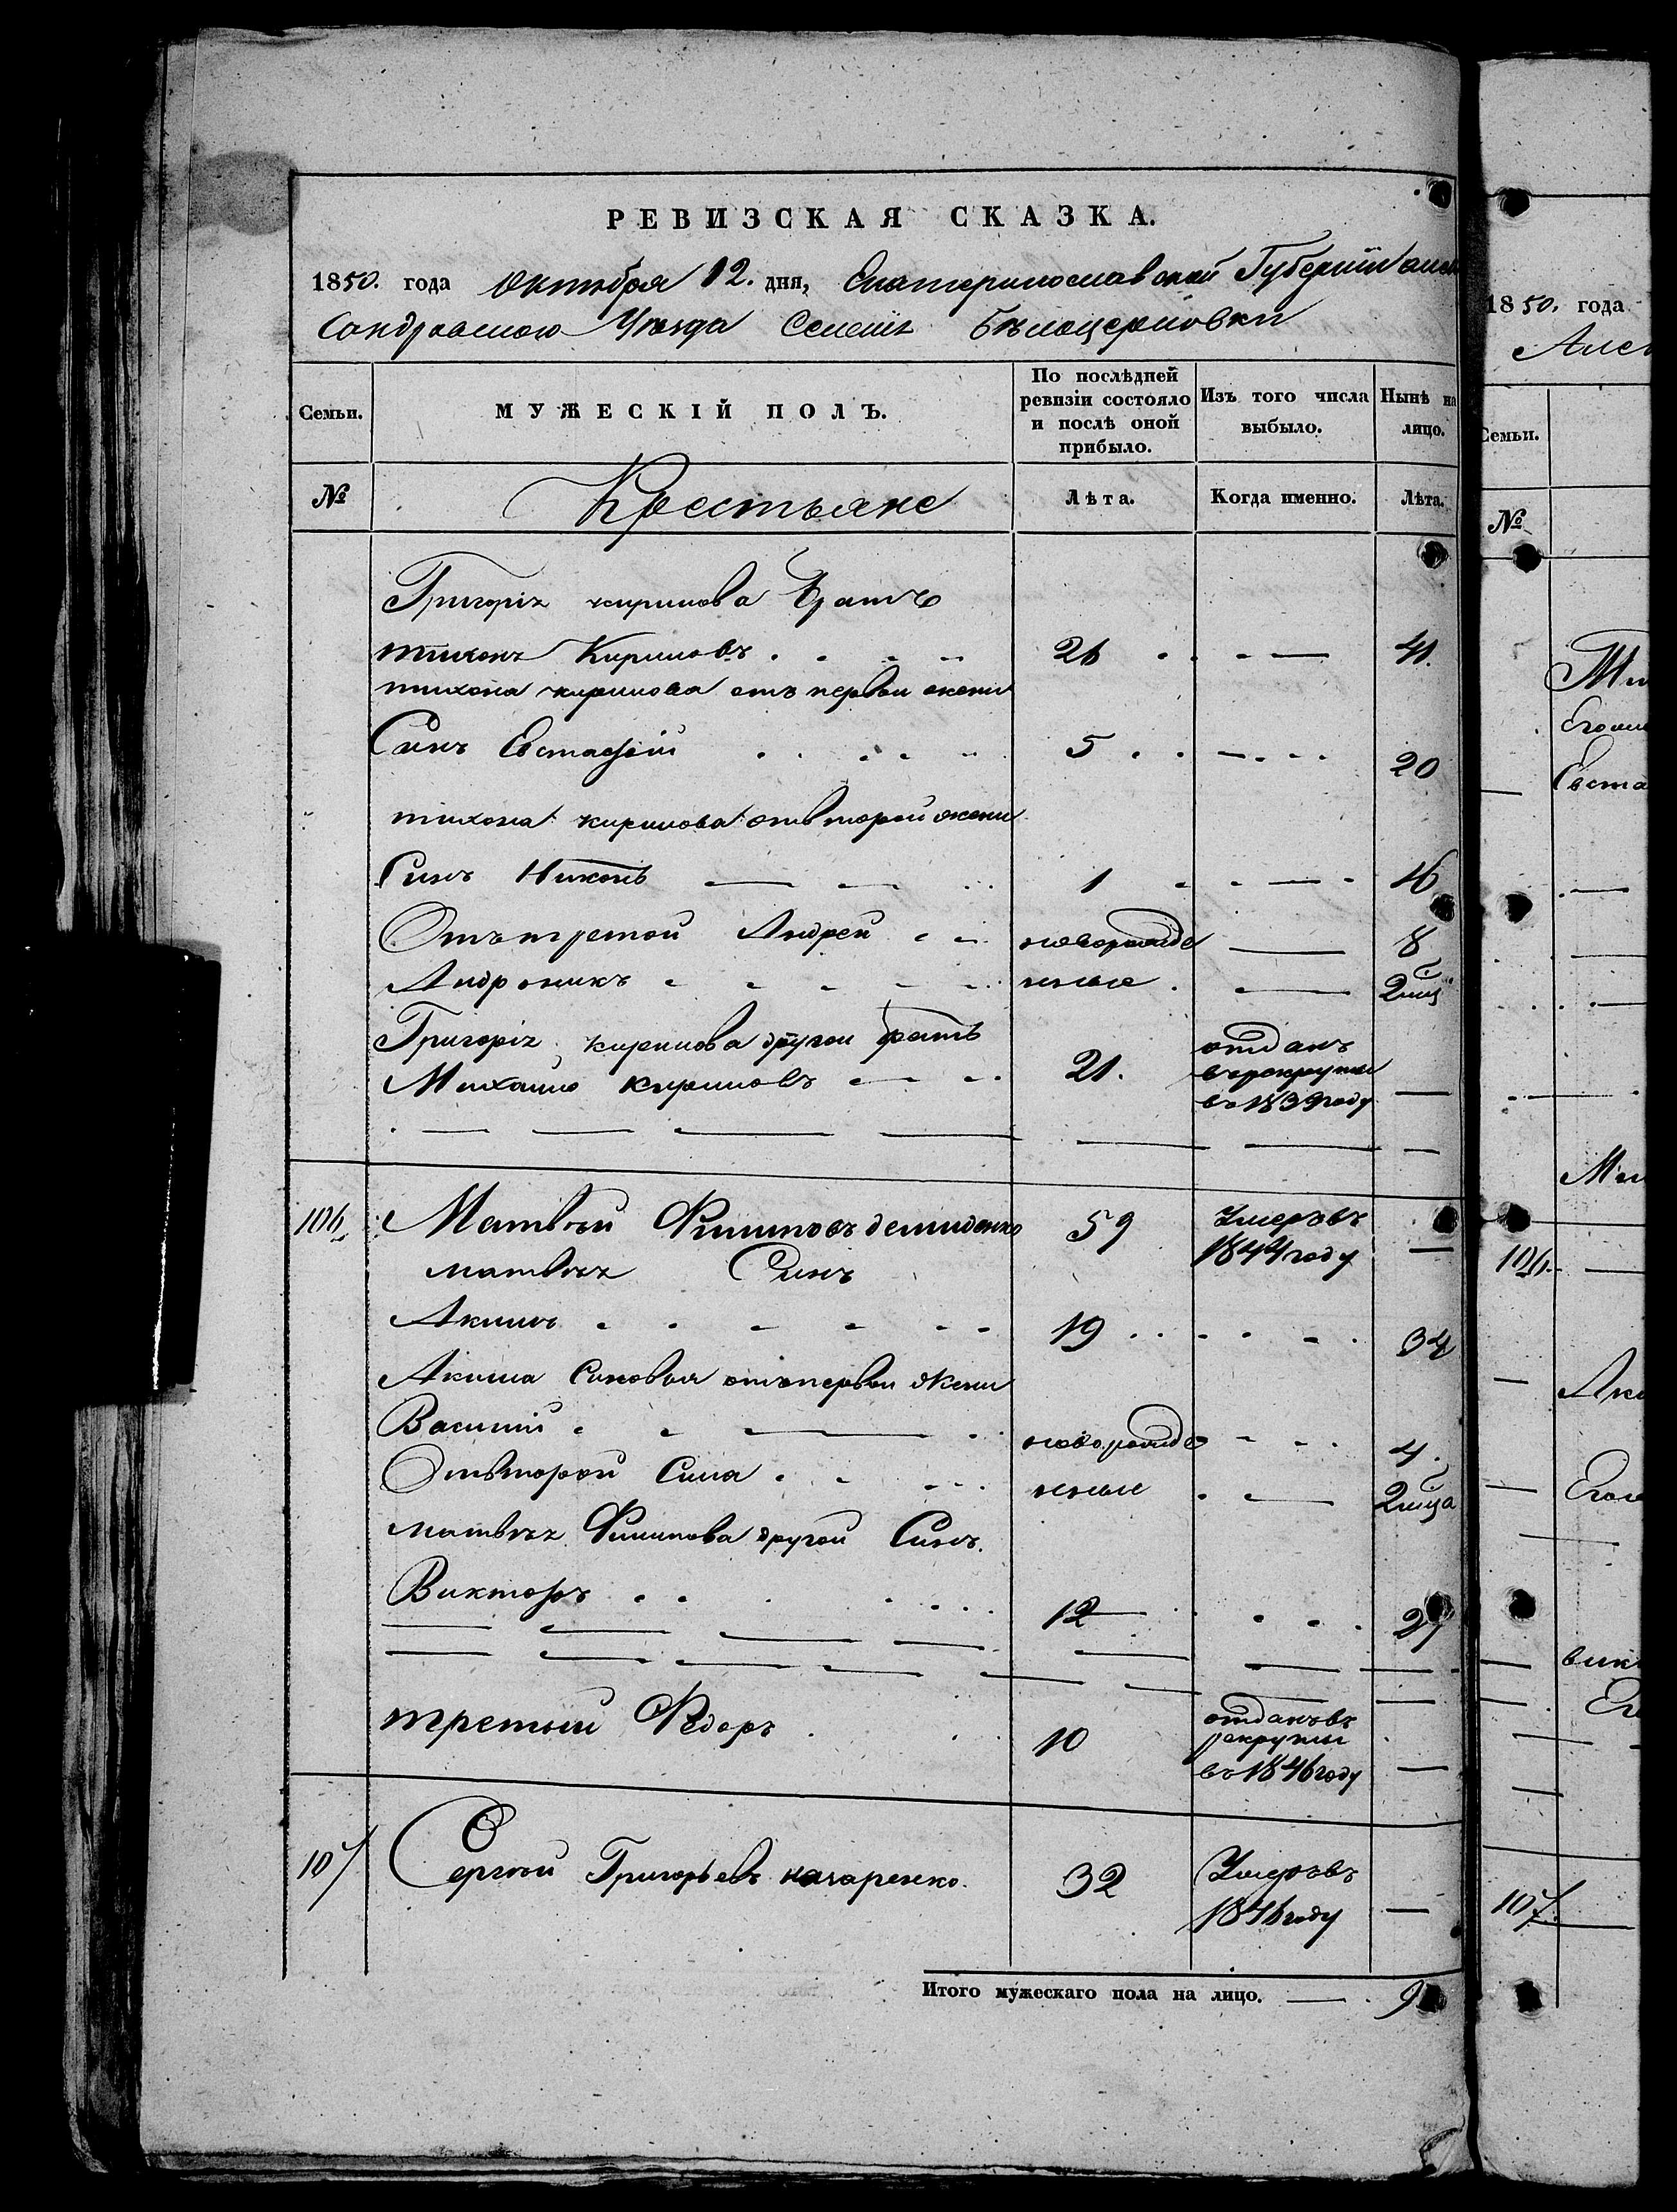 РЕВИЗСКАЯ СКАЗКА.
1850. года Октября 12. дня, Екатеринославской Губернии Алек
сандровскаго Уезда Селенія Белоцерковки
Семьи. МУЖЕСКІЙ ПОЛЪ. По послѣдней ревизіи состояло и послѣ оной прибыло. Изъ того числа выбыло. Нынѣ на лицо.
№ Крестьяне Лѣта. Когда именно. Лѣта.
Григорія кирилова Братъ
тихонъ Кириловъ 26 41.
тихона кирилова отъ первой жени
Синъ Евстафій 5 20
тихона кирилова отвторой жени
Синъ Никонъ 1 16
Отътретой Андрей новорожде 8
Андроникъ нные 2 мц
Григорія кирилова другой братъ
Михайло кириловъ 21. отданъ врекруты въ 1839 году
106 Матвѣй Филиповъ демиденко 59 Умеръ въ 1844 году
матвѣя Синъ
Акимъ 19 34
Акима Синовья отъ первой жени
Василий новорожде 4.
Отвторой Сила нные 2 мца
матвѣя Филипова другой Синъ.
Викторъ 12 27
третый Федоръ 10 отданъ въ рекруты въ 1846 году
107 Сергѣй Григорьевъ назаренко. 32 Умеръ въ 1846 году
Итого мужескаго пола на лицо. 9
1850. года
Алек
Семьи.
№
Евста
106
107.